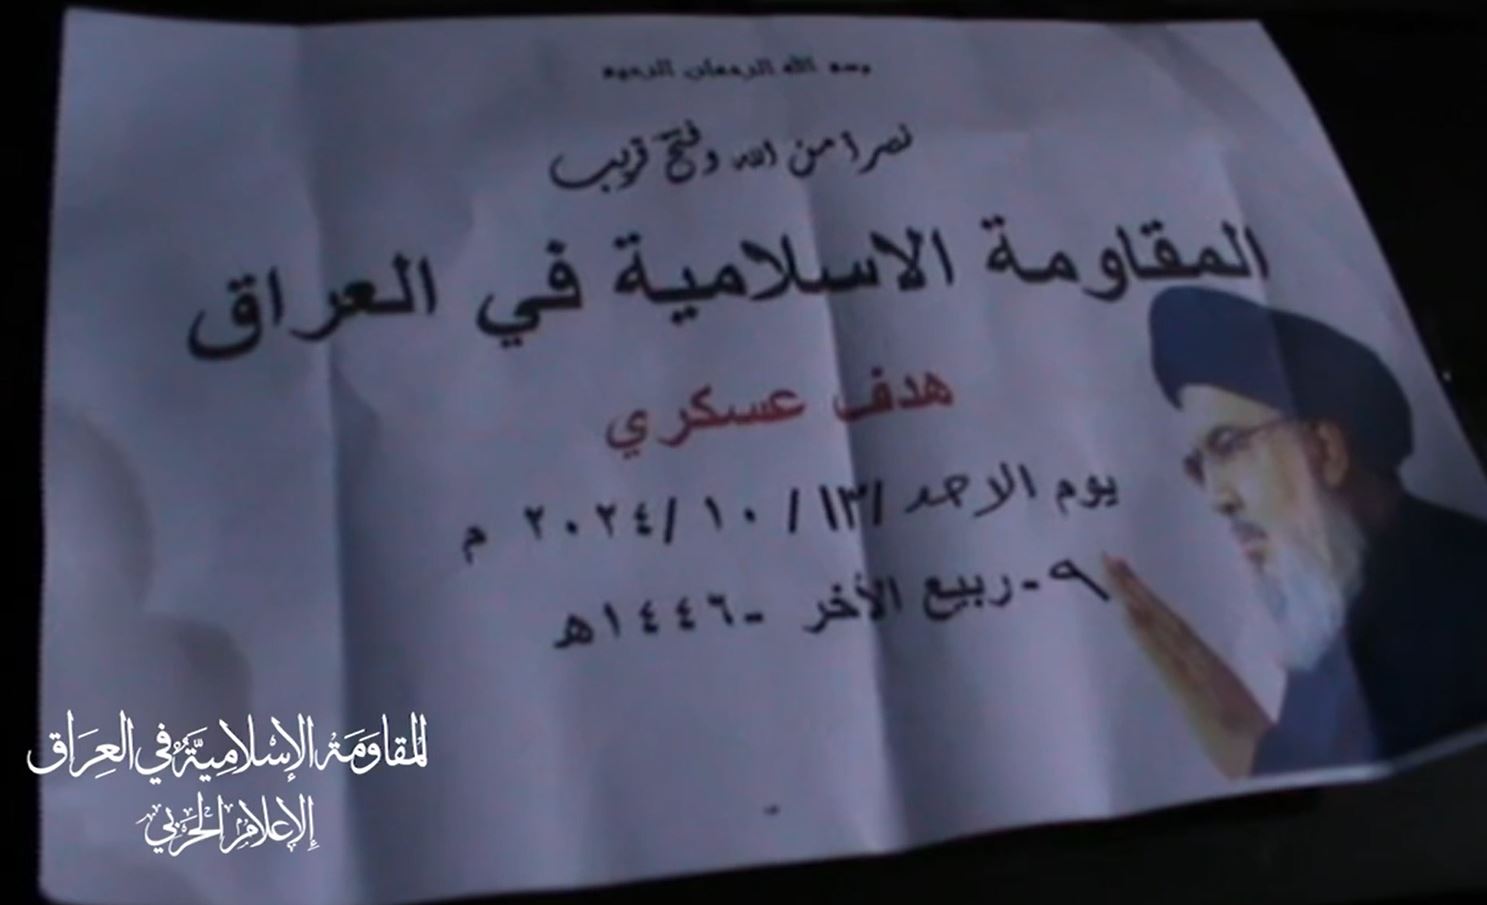 بسم الله الرحمان الرحيم
نصرا من الله وفتح قريب
المقاومة الاسلامية في العراق
هدف عسكري
يوم الاحد /١٣/ ١٠ /٢٠٢٤ م
٩-ربيع الأخر -١٤٤٦هـ
المقاوَمَة الإسْلامِيَّةُ في العِرَاق
الإعْلام الحَرْبي